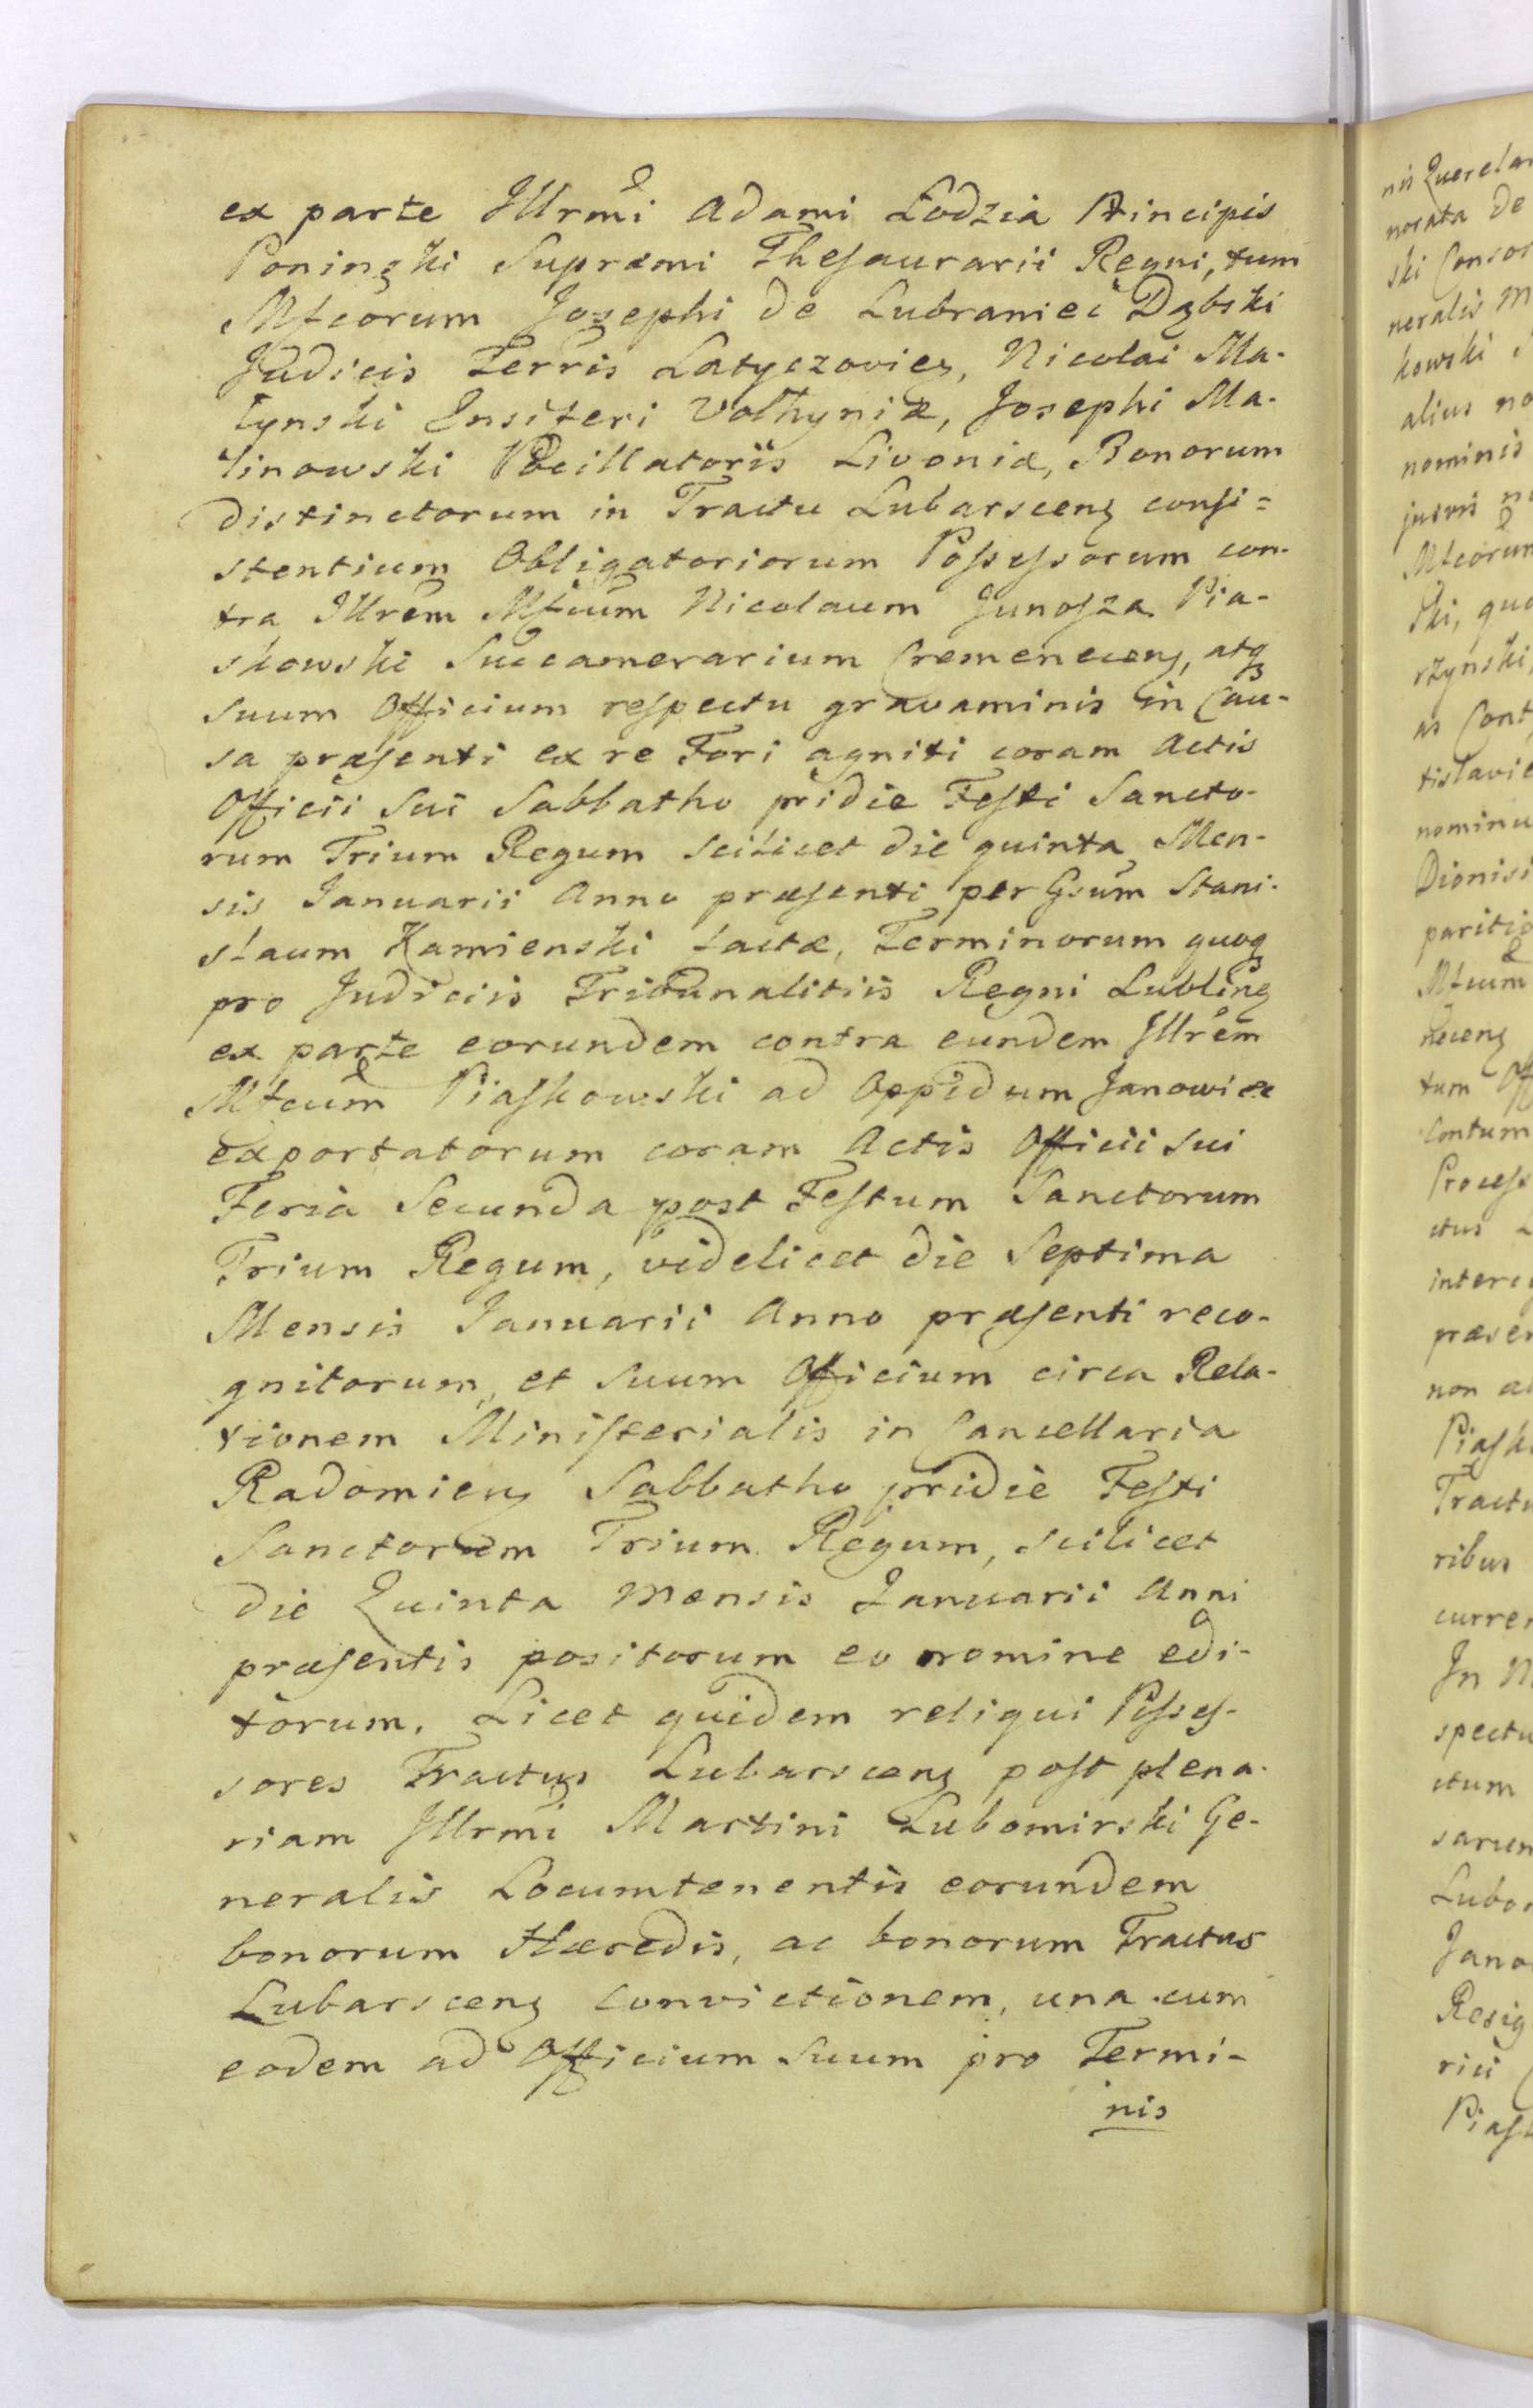 ex parte Jllrmi Adami Łodzia Principis
Poninski Supræmi Thesaurarii Regni, tum
Mfcorum Josephi de Lubraniec Dąbski
Judicis Terris Latyczovien, Nicolai Ma-
łynski Ensiferi Volhyniæ, Josephi Ma-
linowski Pocillatoris Livoniæ, Bonorum
distinctorum in Tractu Lubarscen consi=
stentium Obligatoriorum Possessorum con-
tra Jllrem Mfcum Nicolaum Junosza Pia-
skowski Succamerarium Cremenecen, atq
suum Officium respectu gravaminis in Cau-
sa præsenti ex re Fori agniti coram Actis
Officii Sui Sabbatho pridie Festi Sancto-
rum Trium Regum scilicet die quinta Men-
sis Januarii Anno præsenti per Gsum Stani-
slaum Kamienski factæ, Terminorum quoq
pro Judiciis Tribunalitiis Regni Lublinen
ex parte eorundem contra eundem Jllrem
Mfcum Piaskowski ad Oppidum Janowiec
exportatorum coram Actis Officii sui
Feria Secunda post Festum Sanctorum
Trium Regum, videlicet die Septima
Mensis Januarii Anno præsenti reco-
gnitorum, et suum Officium circa Rela-
tionem Ministerialis in Cancellaria
Radomien Sabbatho pridie Festi
Sanctorum Trium Regum, scilicet
die Quinta Mensis Januarii Anni
præsentis positorum eo nomine edi-
torum. Licet quidem reliqui Posses-
sores Tractus Lubarscen post plena-
riam Jllrmi Martini Lubomirski Ge-
neralis Locumtenentis eorundem
bonorum Hæredis, ac bonorum Tractus
Lubarscen convictionem, una cum
eodem ad Officium suum pro Termi-
nis
nis Querelar
norata de
ski Consor
neralis M
kowski
alius no
nominis
jusvis n
Mfcorum
ski, quo
rzynski,
as Cont
tislavie
nominu
Dionisi
paritio
Mfcum
necen
tum Off
Contum
Process
ctus L
interce
præsen
non a
Piask
Tractu
ribus
curren
In M
spectu
ctum
sarum
Lubo
Jano
Resig
rici
Piask